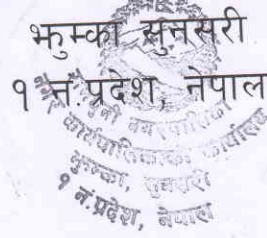 झुम्का सुनसरी
१ नं.प्रदेश, नेपाल
नगर कार्यपालिकाको कार्यालय
झुम्का, सुनसरी
१ नं.प्रदेश, नेपाल